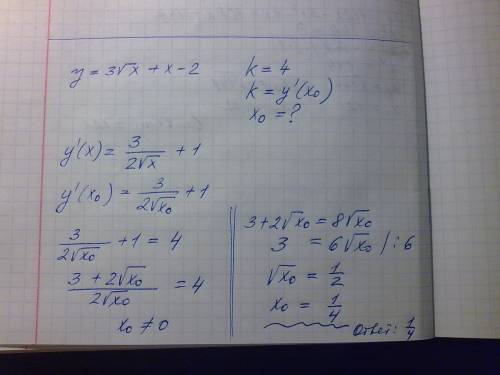 y = 3√x + x - 2
k = 4
k = y'(x₀)
x₀ = ?
y'(x) = 3/(2√x) + 1
y'(x₀) = 3/(2√x₀) + 1
3/(2√x₀) + 1 = 4
(3 + 2√x₀)/(2√x₀) = 4
x₀ ≠ 0
3 + 2√x₀ = 8√x₀
3 = 6√x₀ / : 6
√x₀ = 1/2
x₀ = 1/4
Ответ: 1/4